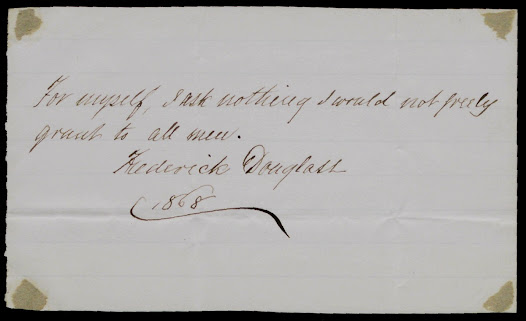 For myself, I ask nothing I would not freely
grant to all men.
Frederick Douglass
1868